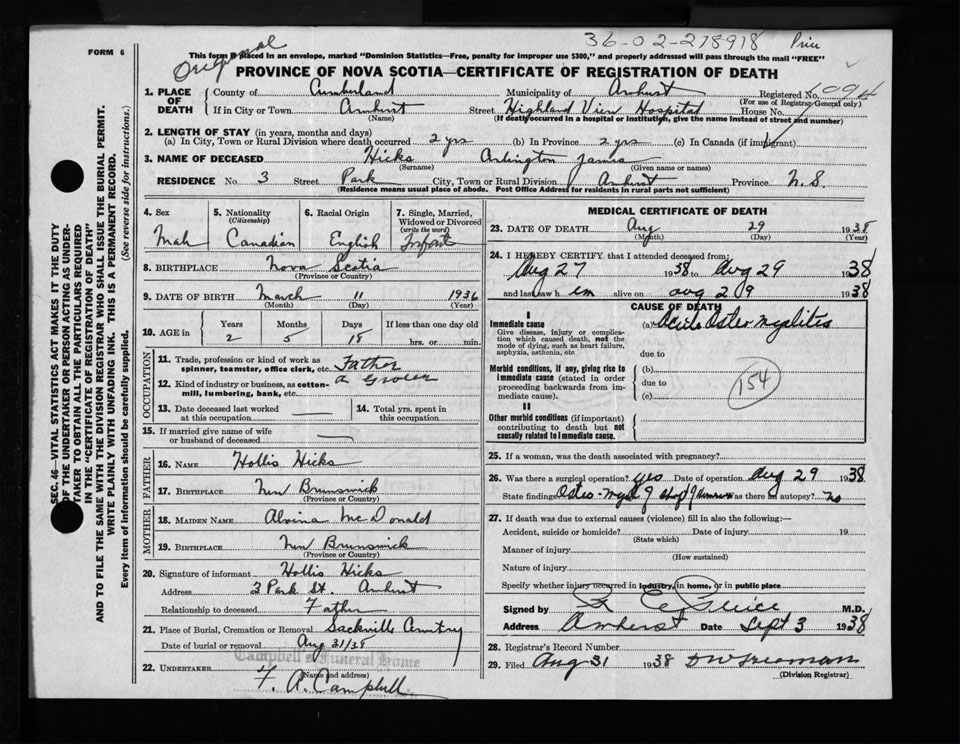 36-02-218918 Price
Original
FORM 6
This form if placed in an envelope, marked "Dominion Statistics—Free, penalty for improper use $300," and properly addressed will pass through the mail "FREE"
PROVINCE OF NOVA SCOTIA—CERTIFICATE OF REGISTRATION OF DEATH
1. PLACE OF DEATH
County of Cumberland Municipality of Amherst Registered No. 094
(For use of Registrar-General only)
If in City or Town Amherst Street Highland View Hospital House No.
(Name) (If death occurred in a hospital or institution, give the name instead of street and number)
2. LENGTH OF STAY (in years, months and days)
(a) In City, Town or Rural Division where death occurred 2 yrs (b) In Province 2 yrs (c) In Canada (if immigrant)
3. NAME OF DECEASED Hicks Arlington James
(Surname) (Given name or names)
RESIDENCE No. 3 Street Park City, Town or Rural Division Amherst Province N.S.
(Residence means usual place of abode. Post Office Address for residents in rural parts not sufficient)
4. Sex 5. Nationality (Citizenship) 6. Racial Origin 7. Single, Married, Widowed or Divorced (write the word)
Male Canadian English Infant
8. BIRTHPLACE Nova Scotia
(Province or Country)
9. DATE OF BIRTH March 11 1936
(Month) (Day) (Year)
10. AGE in Years Months Days If less than one day old
2 5 18 hrs. or min.
OCCUPATION
11. Trade, profession or kind of work as spinner, teamster, office clerk, etc. Father
12. Kind of industry or business, as cotton-mill, lumbering, bank, etc. a Grocer
13. Date deceased last worked at this occupation
14. Total yrs. spent in this occupation
15. If married give name of wife or husband of deceased
FATHER
16. NAME Hollis Hicks
17. BIRTHPLACE New Brunswick
(Province or Country)
MOTHER
18. MAIDEN NAME Alvina McDonald
19. BIRTHPLACE New Brunswick
(Province or Country)
20. Signature of informant Hollis Hicks
Address 3 Park St. Amherst
Relationship to deceased Father
21. Place of Burial, Cremation or Removal Sackville Cemetery
Date of burial or removal Aug 31/38
Campbell's Funeral Home
22. UNDERTAKER
(Name and address)
F. A. Campbell
MEDICAL CERTIFICATE OF DEATH
23. DATE OF DEATH Aug 29 1938
(Month) (Day) (Year)
24. I HEREBY CERTIFY that I attended deceased from:
Aug 27 1938 to Aug 29 1938
and last saw h im alive on Aug 29 1938
CAUSE OF DEATH
I
Immediate cause
Give disease, injury or complication which caused death, not the mode of dying, such as heart failure, asphyxia, asthenia, etc
(a) Acute Osteo-myelites
due to
Morbid conditions, if any, giving rise to immediate cause (stated in order proceeding backwards from immediate cause).
(b)
due to
(c)
154
II
Other morbid conditions (if important) contributing to death but not causally related to immediate cause.
25. If a woman, was the death associated with pregnancy?
26. Was there a surgical operation? yes Date of operation Aug 29 1938
State findings Osteo-myel of Was there an autopsy? no
27. If death was due to external causes (violence) fill in also the following:—
Accident, suicide or homicide? Date of injury 19
(State which)
Manner of injury
(How sustained)
Nature of injury
Specify whether injury occurred in industry, in home, or in public place
Signed by M.D.
Address Amherst Date Sept 3 1938
28. Registrar's Record Number
29. Filed Aug 31 1938
(Division Registrar)
SEC. 46—VITAL STATISTICS ACT MAKES IT THE DUTY
OF THE UNDERTAKER OR PERSON ACTING AS UNDER-
TAKER TO OBTAIN ALL THE PARTICULARS REQUIRED
IN THE "CERTIFICATE OF REGISTRATION OF DEATH"
AND TO FILE THE SAME WITH THE DIVISION REGISTRAR WHO SHALL ISSUE THE BURIAL PERMIT.
WRITE PLAINLY WITH UNFADING INK. THIS IS A PERMANENT RECORD.
Every item of information should be carefully supplied. (See reverse side for instructions.)